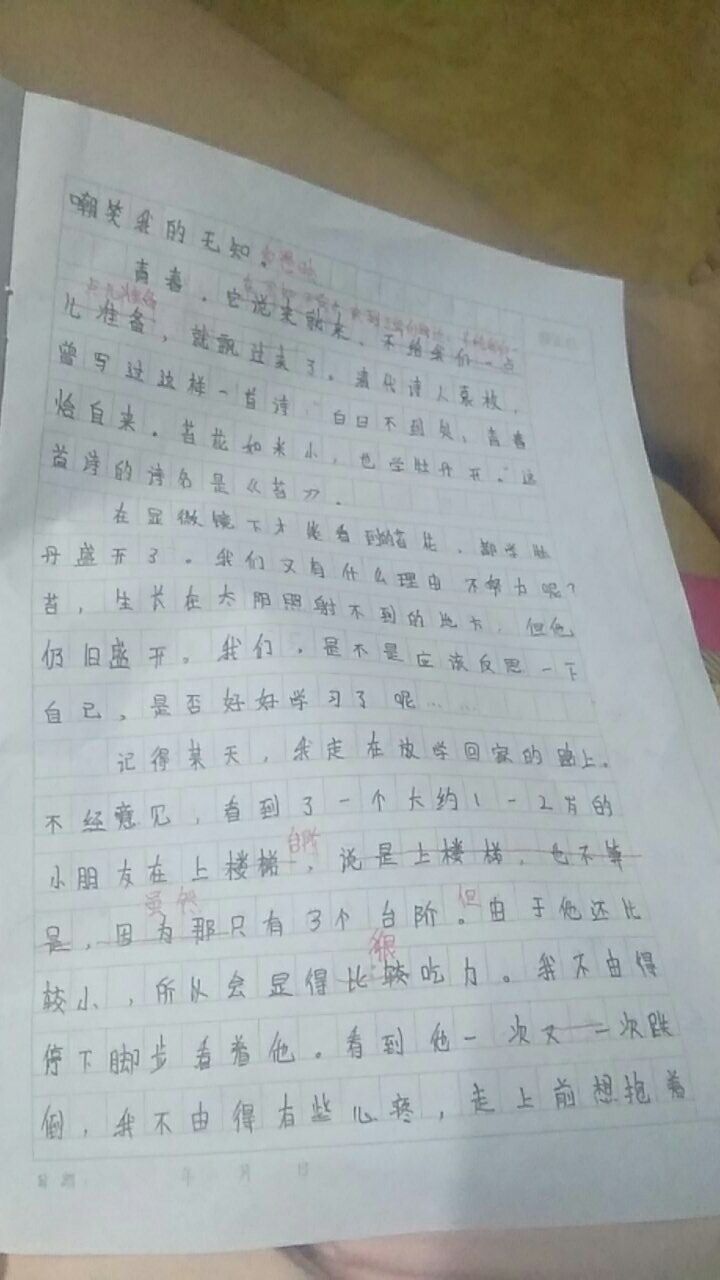 嘲笑我的无知。
青春，它说来就来，不给我们一点
点儿准备
儿准备，就飘过来了。清代诗人袁枚，
曾写过这样一首诗“白日不到处，青春
恰自来。苔花如米小，也学牡丹开。”这
首诗的诗名是《苔》。
在显微镜下才能看到的苔花，都学牡
丹盛开了。我们又有什么理由不努力呢？
苔，生长在太阳照射不到的地方，但他
仍旧盛开。我们，是不是应该反思一下
自己，是否好好学习了呢……
记得某天，我走在放学回家的路上。
不经意见，看到了一个大约1-2岁的
小朋友在上楼梯，说是上楼梯，也不算
台阶
是，因为那只有3个台阶。由于他还比
虽然
但
较小，所以会显得比较吃力。我不由得
很
停下脚步看着他。看到他一次又一次跌
倒，我不由得有些心疼，走上前想抱着
年 月 日